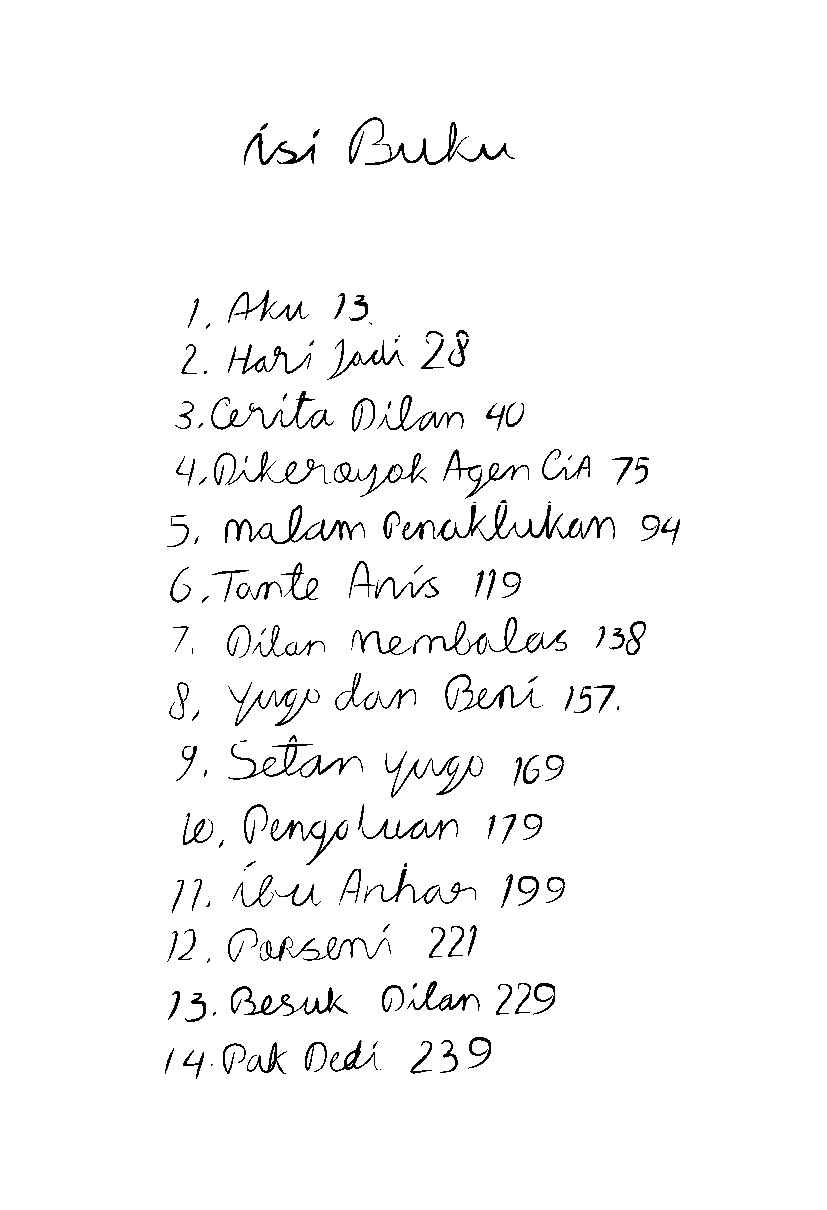 isi Buku
1. Aku 13
2. Hari Jadi 28
3. Cerita Dilan 40
4. Dikeroyok Agen CiA 75
5. malam Penaklukan 94
6. Tante Anis 119
7. Dilan Membalas 138
8, Yugo dan Beni 157.
9. Setan Yugo 169
10. Pengaluan 179
11. ibu Anhar 199
12. Porseni 221
13. Besuk Dilan 229
14. Pak Dedi 239